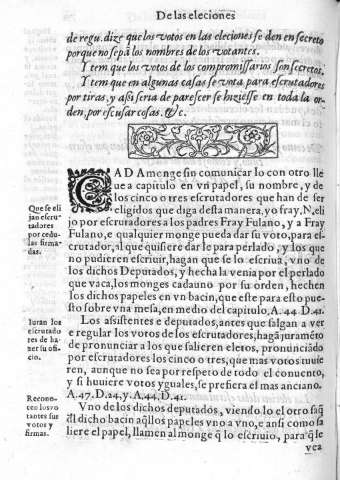 De las eleciones
de regu. dize que los votos en las eleciones se den en secreto
porque no sepã los nombres de los votantes.
Y tem que los votos de los compromissarios son secretos.
Y tem que en algunas casas se vota para escrutadores
por tiras, y assi seria de parescer se hiziesse en toda la or-
den, por escusar cosas. &c.
CADA monge sin comunicar lo con otro lle
ue a capitulo en vn papel, su nombre, y de
los cinco o tres escrutadores que han de ser
eligidos que diga desta manera, yo fray, N, eli
jo por escrutadores a los padres Fray Fulano, y a Fray
Fulano, e qualquier monge pueda dar su voto, para es-
crutador, al que quisiere dar le para perlado, y los que
no pudieren escriuir, hagan que se lo escriua, vno de
los dichos Deputados, y hecha la venia por el perlado
que vaca, los monges cada uno por su orden, hechen
los dichos papeles en vn bacin, que este para esto pue-
sto sobre vna mesa, en medio del capitulo, A. 44 D. 41.
Los assistentes e deputados, antes que salgan a ver
e regular los votos de los escrutadores, hagã juramẽto
de pronunciar a los que salieren eletos, pronunciãdo
por escrutadores los cinco o tres, que mas votos tuuie
ren, aunque no sea por respeto de todo el conuento,
y si huuiere votos yguales, se prefiera el mas anciano.
A. 47. D. 24, y. A. 44, D. 41.
Vno de los dichos deputados, viendo lo el otro saq̃
el dicho bacin aq̃llos papeles vno a vno, e ansi como sa
liere el papel, llamen al monge q̃ lo escriuio, para q̃ se
vea
Que se eli
jan escru-
tadores
por cedu-
las firma-
das.
Iuran los
escrutado
res de ha-
zer su ofi-
cio.
Recono-
cen los vo
tantes sus
votos y
firmas.